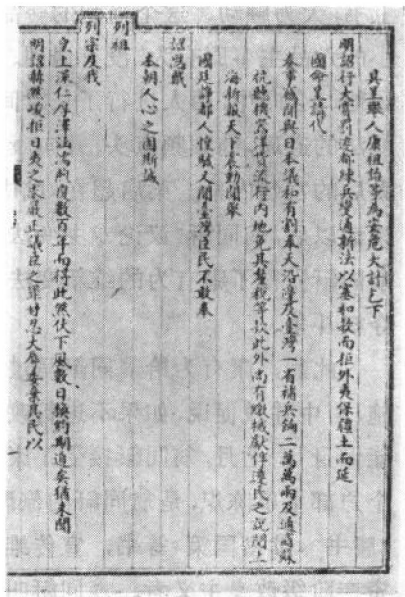 具呈舉人康祖詒等為安危大計乞下
明詔行大賞罰遷都練兵變通新法以塞和款而拒外夷保疆土而延
國命呈請代
奏事竊聞與日本議和有割奉天沿邊及臺灣一省補兵餉二萬萬兩及通商蘇
杭聽機器洋貨流行內地免其釐稅等款此外尚有繳械獻俘遷民之說閱上
海新報天下震動聞舉
國廷諍都人惶駭又聞臺灣臣民不敢奉
詔思戴
本朝人心之固斯誠
列祖
列宗及我
皇上深仁厚澤涵濡煦覆數百年而得此然伏下風數日換約期迫矣猶未聞
明詔赫然峻拒日夷之求嚴正議臣之罪甘忍大辱委棄其民以